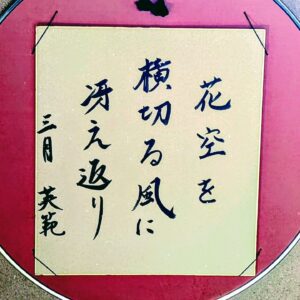 花空を
横切る風に
冴え返り
三月 英範